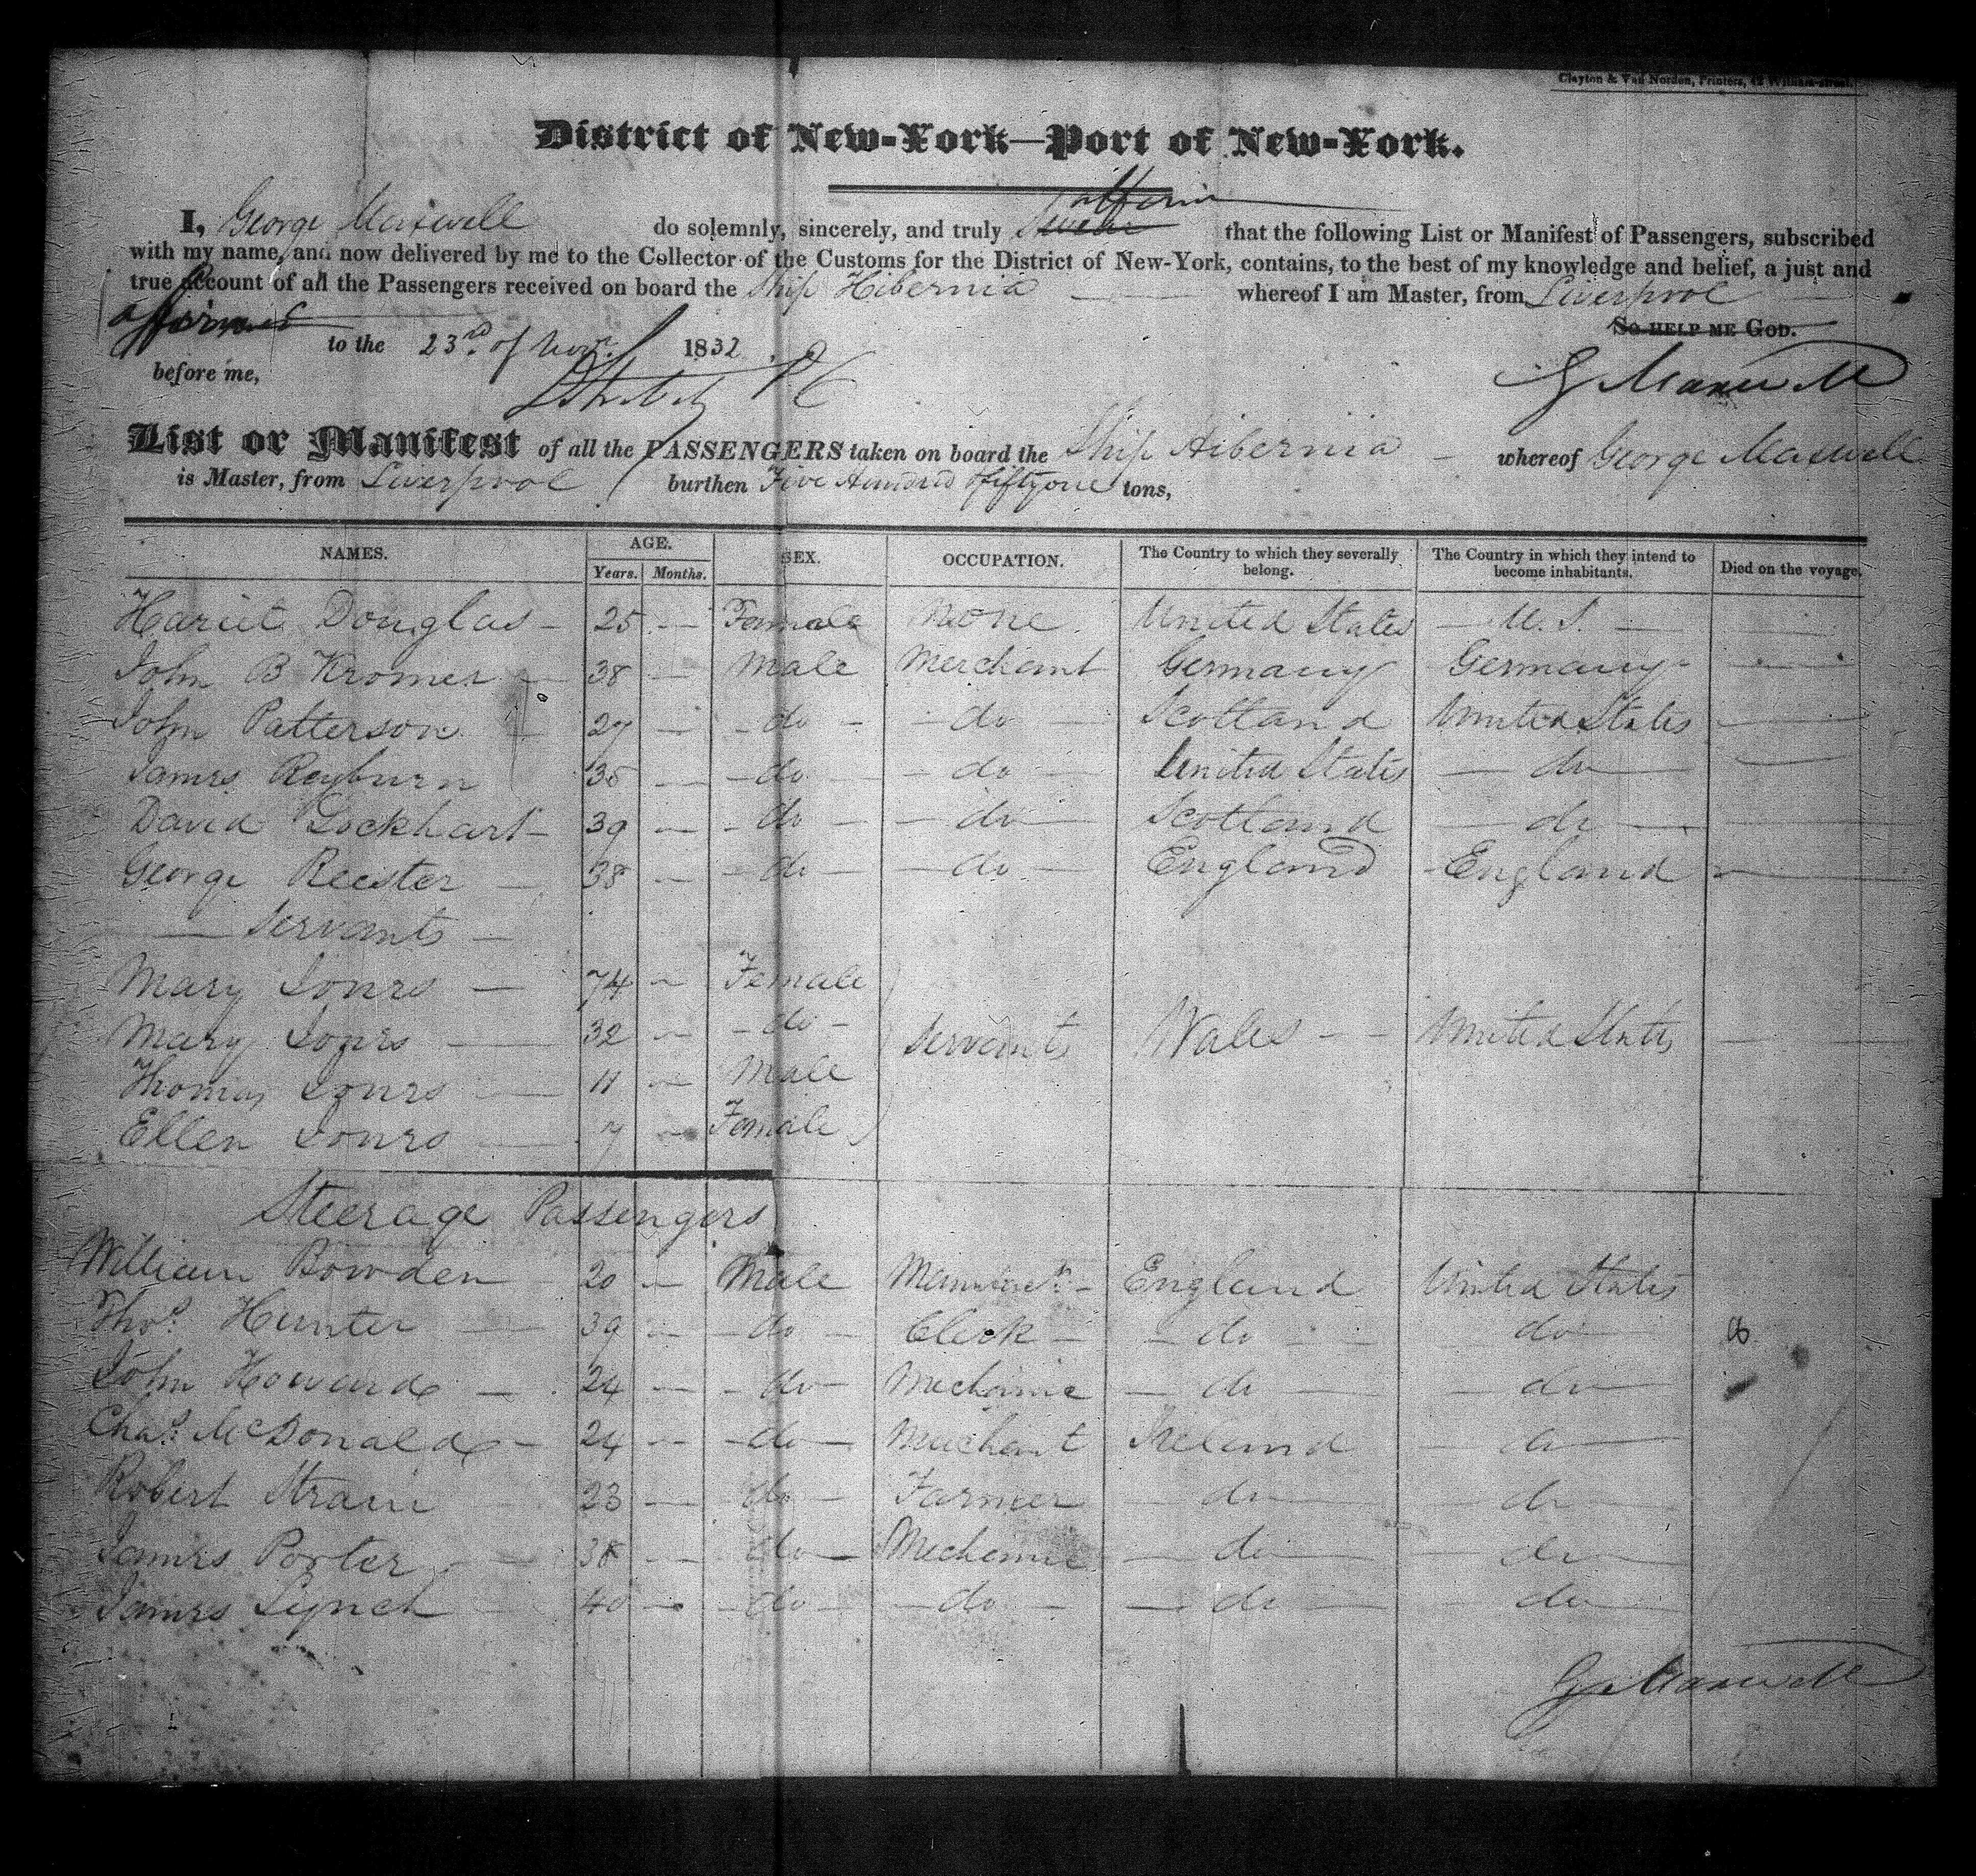 Clayton & Van Norden, Printers, 42 William-street.
District of New-York—Port of New-York.
affirm
I, George Maxwell do solemnly, sincerely, and truly swear that the following List or Manifest of Passengers, subscribed
with my name, and now delivered by me to the Collector of the Customs for the District of New-York, contains, to the best of my knowledge and belief, a just and
true account of all the Passengers received on board the Ship Hibernia whereof I am Master, from Liverpool
affirmed So help me God.
to the 23rd of Novr. 1832
before me, G Maxwell
List or Manifest of all the PASSENGERS taken on board the Ship Hibernia whereof George Maxwell
is Master, from Liverpool burthen Five Hundred & fiftyone tons,
NAMES. AGE. Years. Months. SEX. OCCUPATION. The Country to which they severally belong. The Country in which they intend to become inhabitants. Died on the voyage.
Hariet Douglas — 25 — Female None United States — U.S. —
John B Kromer — 38 — Male Merchant Germany Germany —
John Patterson — 27 — do — do — Scotland United States —
James Reyburn 35 — do — do — United States — do —
David Lockhart — 39 — do — do — Scotland — do —
George Reester — 38 — do — do — England England —
— Servants —
Mary Jones — 74 — Female
Mary Jones — 32 — do — Servants Wales — United States —
Thomas Jones — 11 — Male
Ellen Jones — 7 — Female
Steerage Passengers
William Bowden 20 — Male England United States
Thos. Hunter — 39 — do — Clerk — do — do —
John Howard — 24 — do — Mechanic — do — do —
Chas. McDonald — 24 — do — Merchant Ireland — do —
Robert Strain 23 — do — Farmer — do — do —
James Porter — 38 — do — Mechanic — do — do —
James Lynch 40 — do — do — do — do —
G Maxwell